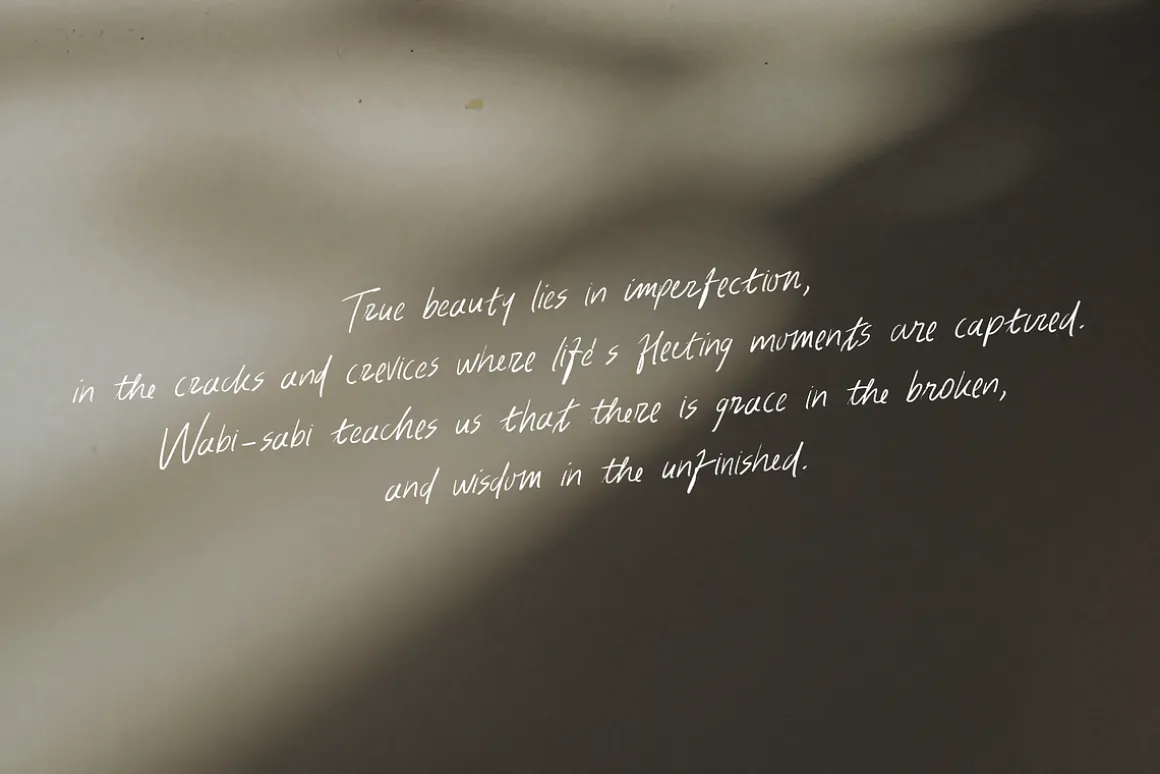 True beauty lies in imperfection,
in the cracks and crevices where life's fleeting moments are captured.
Wabi-sabi teaches us that there is grace in the broken,
and wisdom in the unfinished.